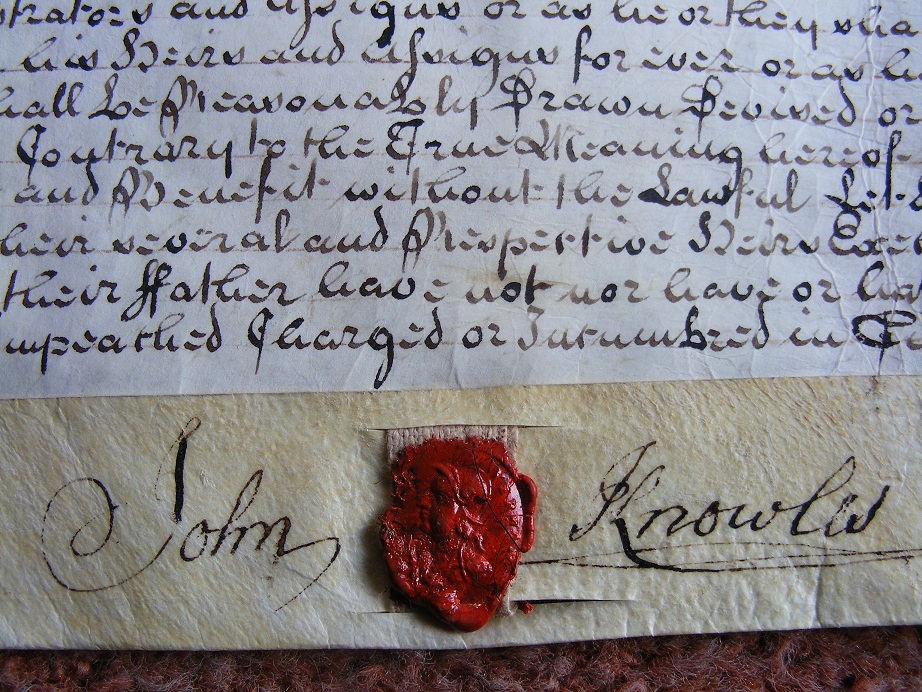 strators and Assigns or as he or they sha
his Heirs and Assigns for ever or as h
hall be Reasonably Drawn Devised or
Contrary to the True Meaning hereof
and Benefit without the Lawful Let S
heir several and Respective Heirs Exec
their ffather have not nor have or ha
mpeached Charged or Incumbred in
John Knowles